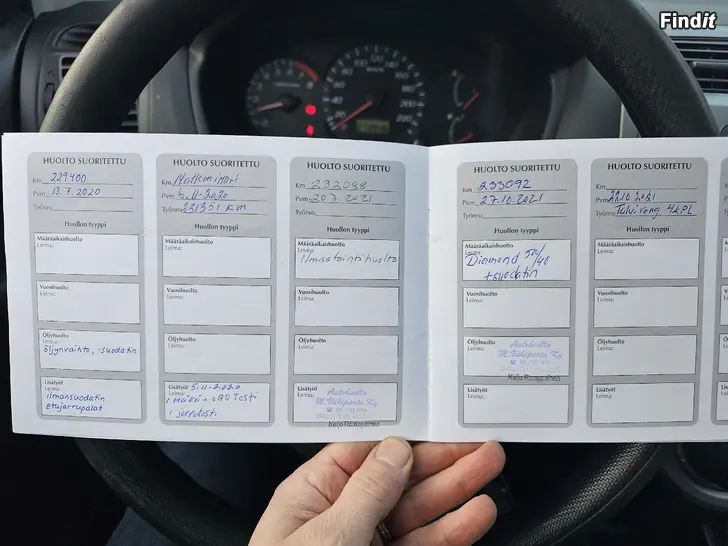 Findit
HUOLTO SUORITETTU
Km 229400
Pvm 13.7.2020
Työnro
Huollon tyyppi
Määräaikaishuolto
Leima:
Vuosihuolto
Leima:
Öljyhuolto
Leima:
öljynvaihto, -suodatin
Lisätyöt
Leima:
ilmansuodatin
etujarrupalat
HUOLTO SUORITETTU
Km
Pvm 5.11-2020
Työnro 231351 km
Huollon tyyppi
Määräaikaishuolto
Leima:
Vuosihuolto
Leima:
Öljyhuolto
Leima:
Lisätyöt 5.11-2020
Leima:
HUOLTO SUORITETTU
Km 232088
Pvm 20.7.2021
Työnro
Huollon tyyppi
Määräaikaishuolto
Leima:
Ilmastointihuolto
Vuosihuolto
Leima:
Öljyhuolto
Leima:
Lisätyöt
Leima:
Autohuolto
M. Väkiparta Ky
Keijo Ramppainen
HUOLTO SUORITETTU
Km 233092
Pvm 27.10.2021
Työnro
Huollon tyyppi
Määräaikaishuolto
Leima:
Diamond
+suodatin
Vuosihuolto
Leima:
Öljyhuolto
Leima:
Autohuolto
M. Väkiparta Ky
Keijo Ramppainen
Lisätyöt
Leima:
HUOLTO SUORITETTU
Km
Pvm 22.10.2021
Työnro Talvireng 4kpl
Huollon tyyppi
Määräaikaishuolto
Leima:
Vuosihuolto
Leima:
Öljyhuolto
Leima:
Lisätyöt
Leima: